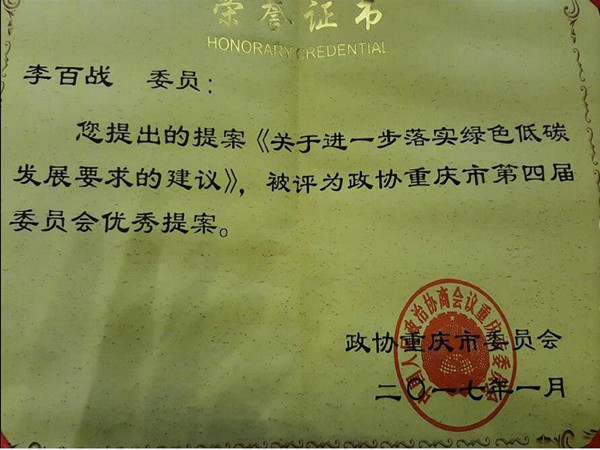 荣誉证书
HONORARY CREDENTIAL
李百战 委员：
您提出的提案《关于进一步落实绿色低碳
发展要求的建议》，被评为政协重庆市第四届
委员会优秀提案。
中国人民政治协商会议重庆市委员会
政协重庆市委员会
二〇一七年一月